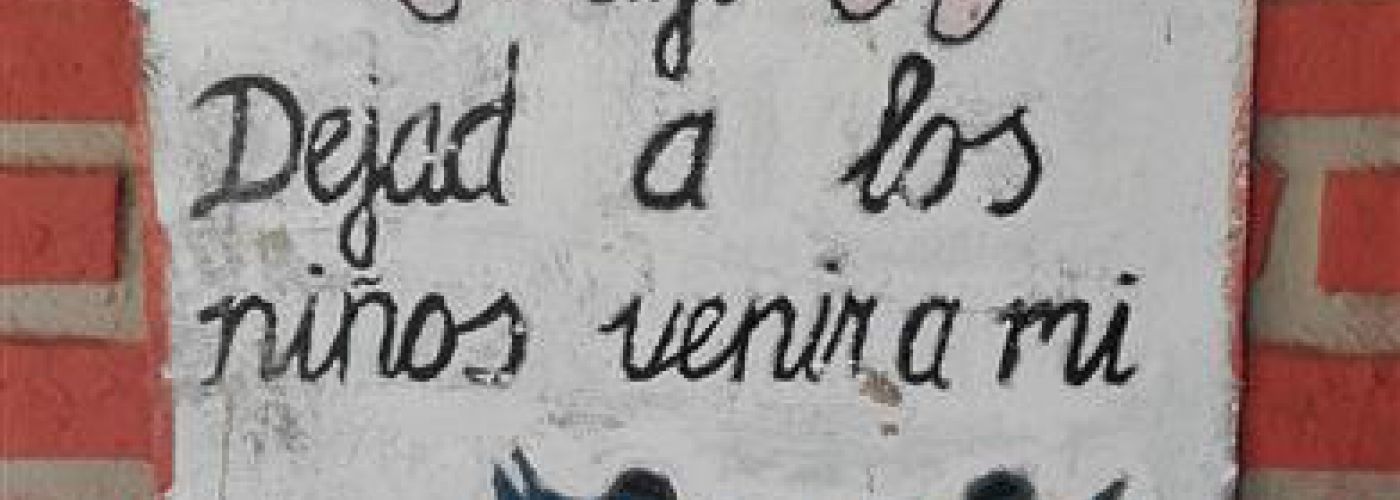 Dejad a los
niños venir a mi